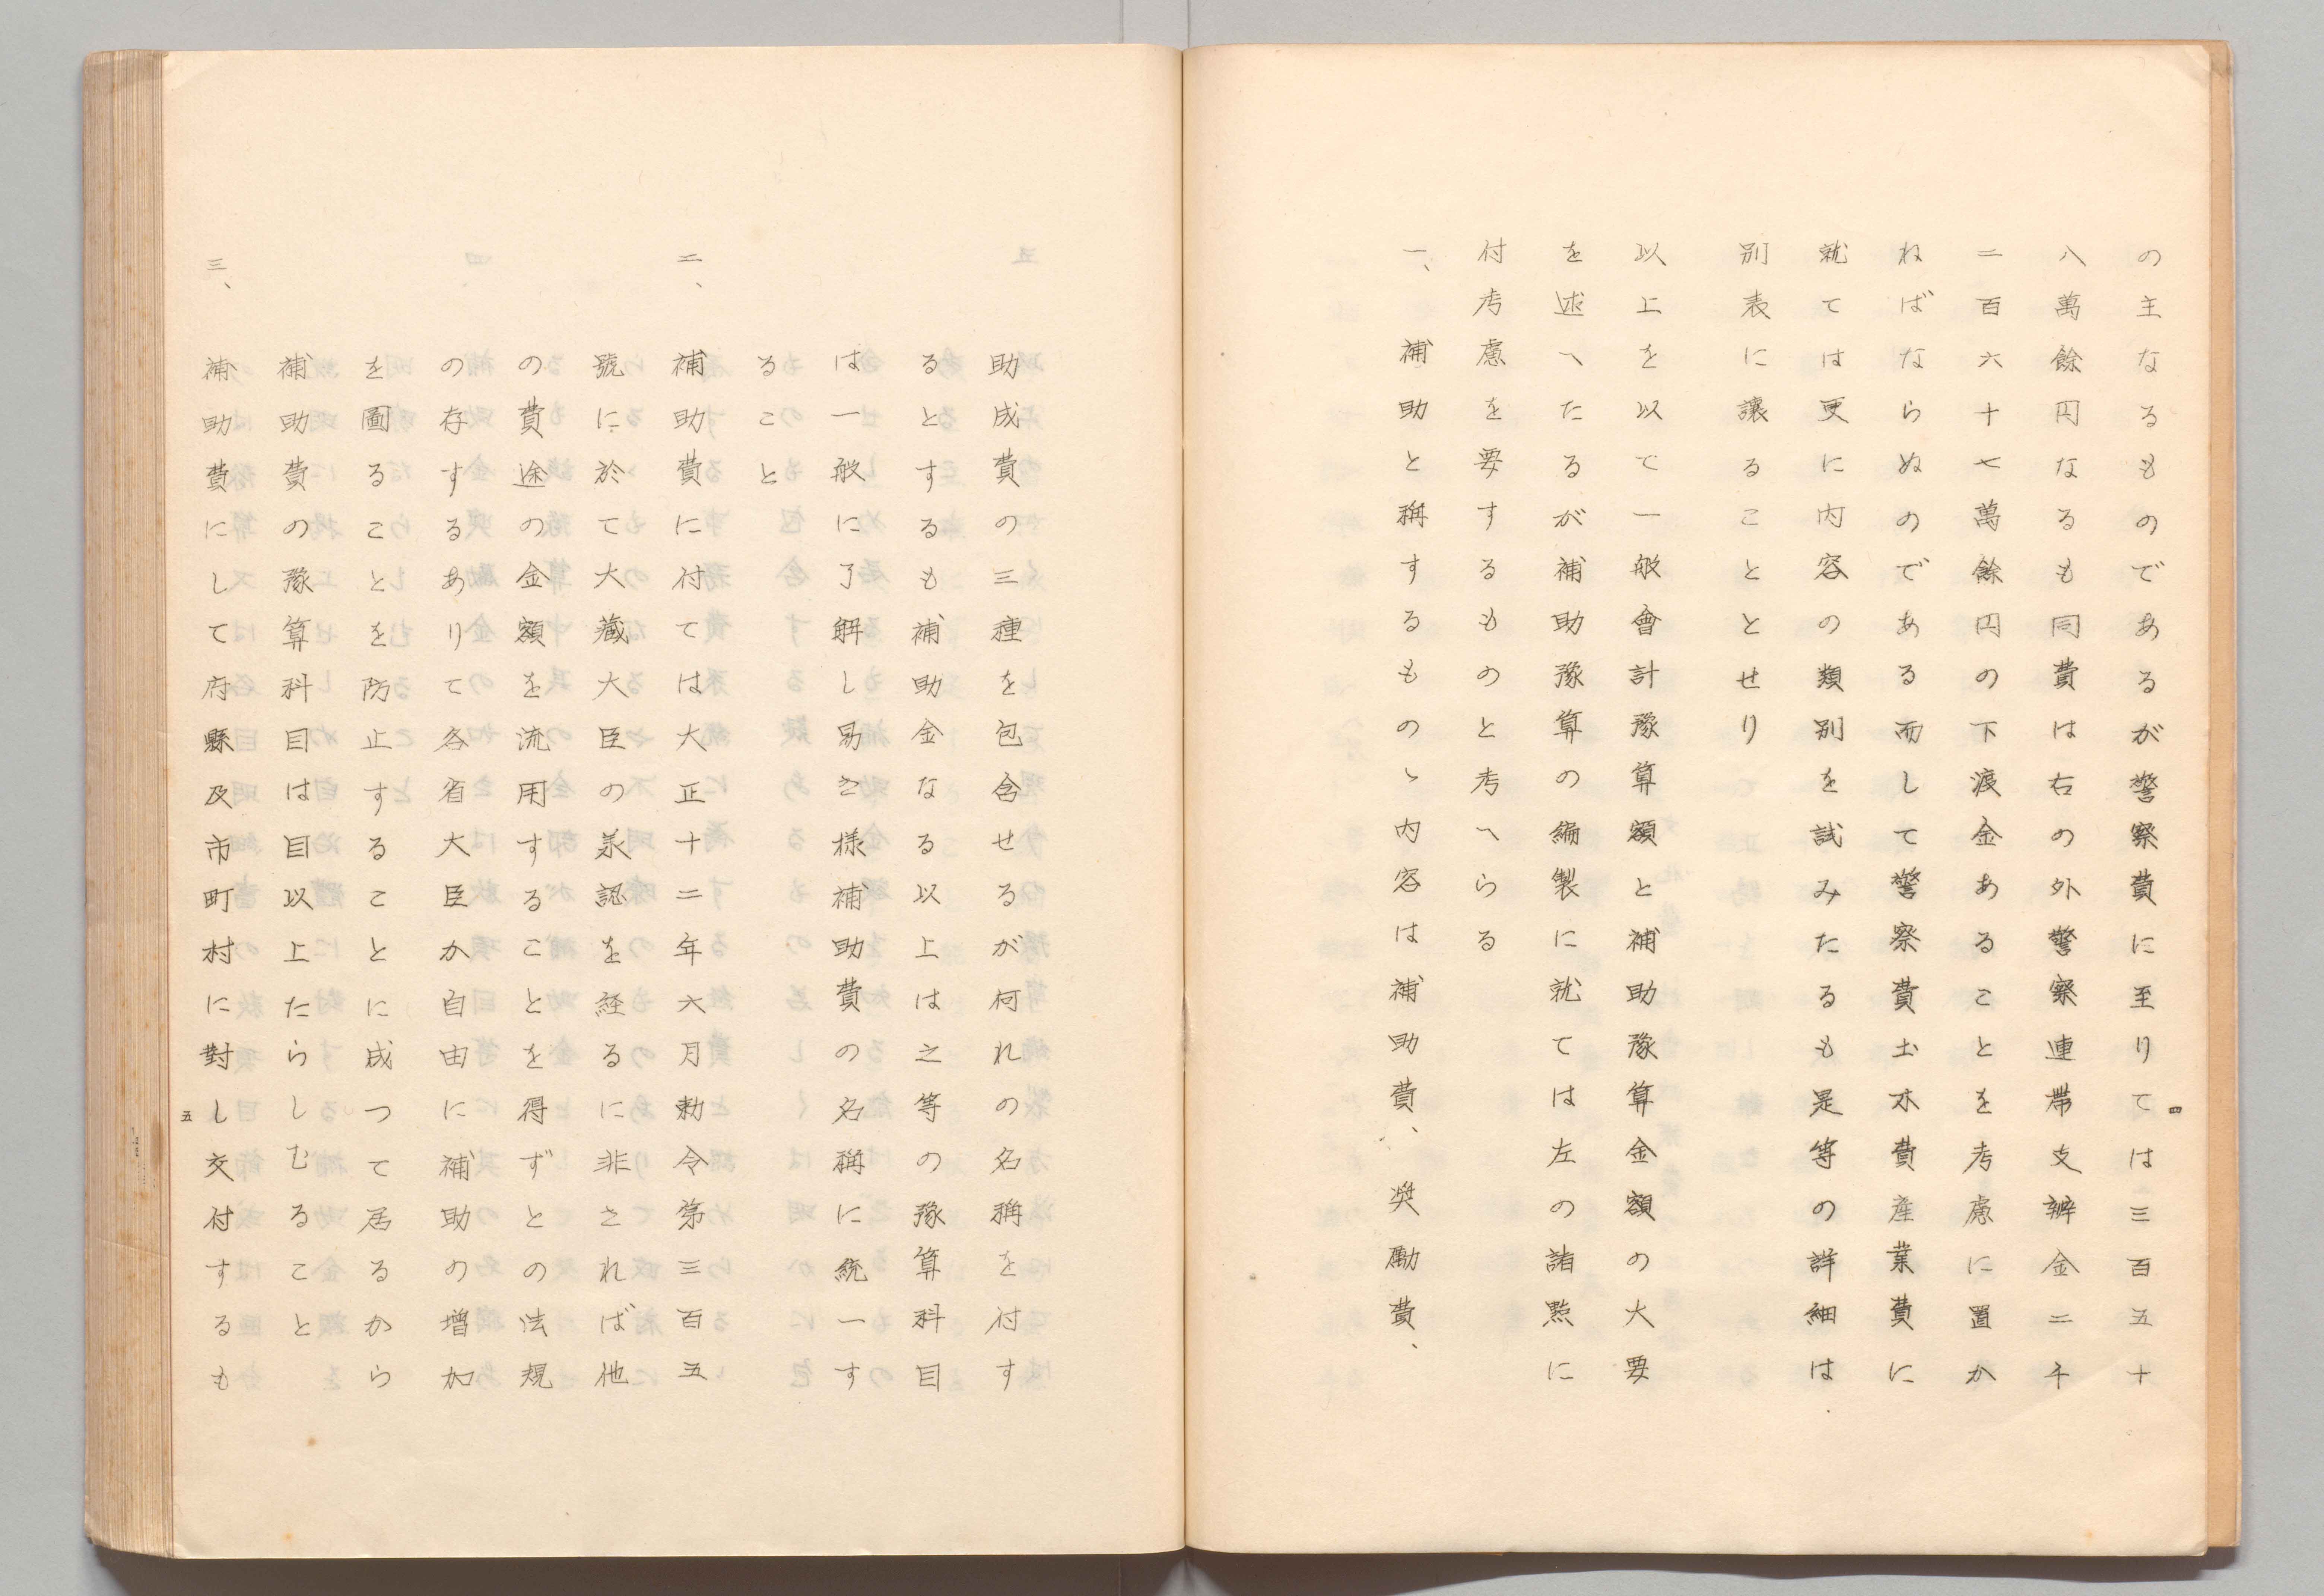 の主なるものであるが警察費に至りては三百五十
八萬餘円なるも同費は右の外警察連帯支辨金二千
二百六十七萬餘円の下渡金あることを考慮に置か
ねばならぬのである而して警察費土木費産業費に
就ては更に内容の類別を試みたるも是等の詳細は
別表に譲ることとせり
以上を以て一般會計豫算額と補助豫算金額の大要
を述へたるが補助豫算の編製に就ては左の諸點に
付考慮を要するものと考へらる
一、補助と稱するものゝ内容は補助費、奨勵費、
四
助成費の三種を包含せるが何れの名稱を付す
るとするも補助金なる以上は之等の豫算科目
は一般に了解し易き様補助費の名稱に統一す
ること
二、補助費に付ては大正十二年六月勅令第三百五
號に於て大藏大臣の承認を経るに非されば他
の費途の金額を流用することを得ずとの法規
の存するありて各省大臣か自由に補助の増加
を圖ることを防止することに成つて居るから
補助費の豫算科目は目以上たらしむること
三、補助費にして府縣及市町村に對し交付するも
五